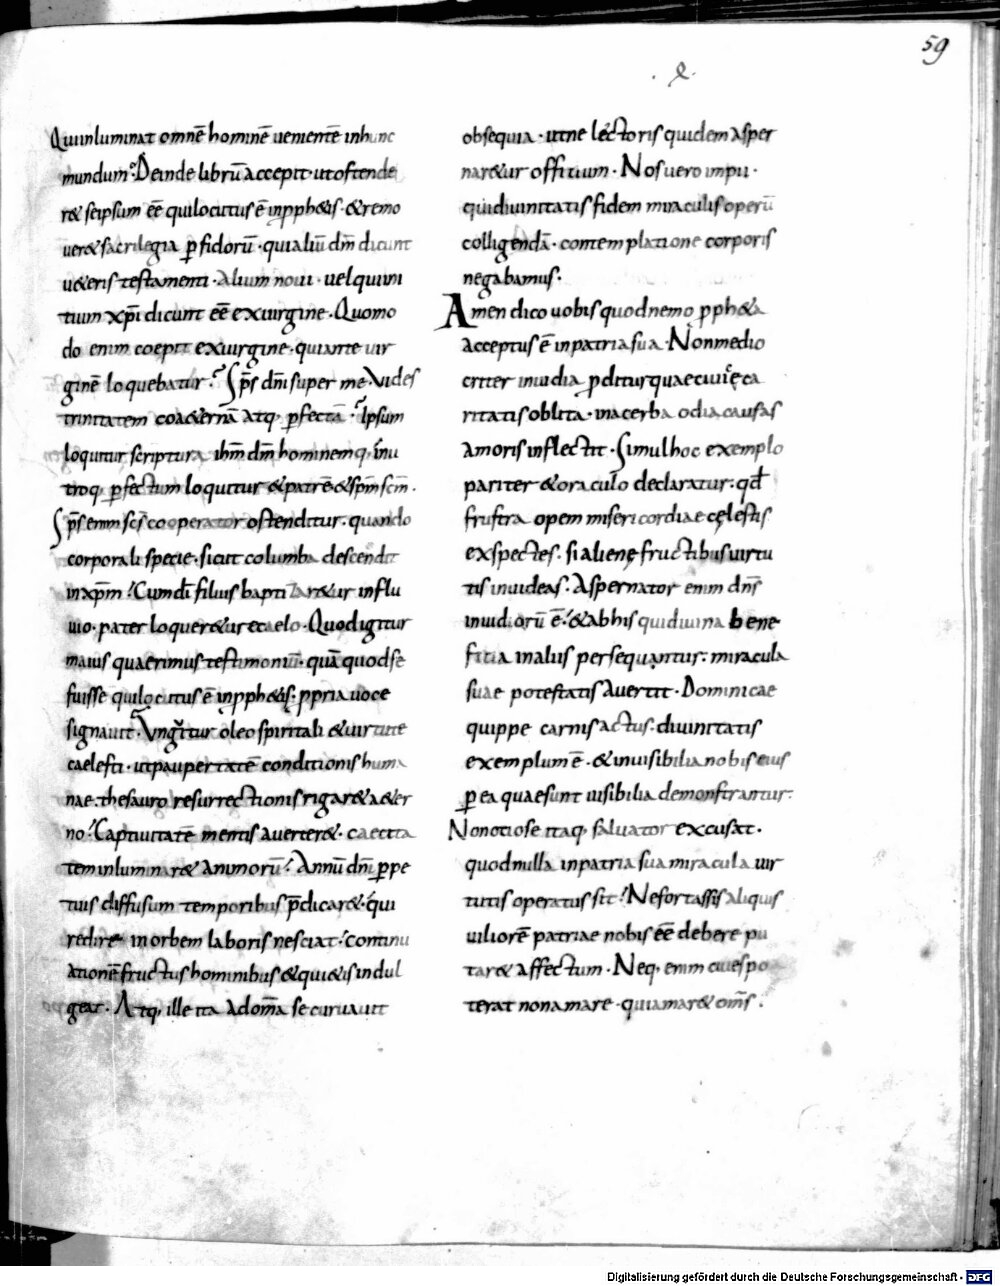 59
Qui inluminat omnē hominē uenientē inhunc
mundum. Deinde librū accepit ut oftende
r& seipsum eē qui locutus ē inpph&is. & remo
uer& sacrilegia pfidorū. qui aliū dm̄ dicunt
u&eris testamenti. Alium noui. uel qui ini
tium xp̄i dicunt eē ex uirgine. Quomo
do enim coepit ex uirgine. qui ante uir
ginē loquebatur? Sp̄s dn̄i super me. Vides
trinitatem coa&ernā atq; pfectā. Ipsum
loquitur scriptura ihm̄ dm̄ hominemq; inu
troq; pfectum loquitur & patrē & sp̄m scm̄.
Sp̄s enim scs̄ cooperator ostenditur. quando
corporali specie. sicut columba descendit
in xp̄m. Cum dī filius baptizar&ur influ
uio. pater loquer&ur e caelo. Quod igitur
maius quaerimus testimoniū. quā quod se
fuisse qui locutus ē inpph&is; ppria uoce
signauit. Vngitur oleo spiritali & uirtute
caelesti. ut paupertatē conditionis huma
nae. thesauro resurrectionis rigar& a&er
no. Captiuitatē mentis auerter&. caecita
tem inluminar& animorū. Annū dn̄i ppe
tuis diffusum temporibus p̄dicar&. qui
redire in orbem laboris nesciat. continu
ationē fructus hominibus & qui&is indul
geat. Atq; ille ita ad om̄a se curuauit
obsequia. ut ne lectoris quidem asper
nar&ur offitium. Nos uero impii.
qui diuinitatis fidem miraculis operū
colligendā. contemplatione corporis
negabamus.
Amen dico uobis quod nemo pph&a
acceptus ē in patria sua. Non medio
criter inuidia pditur quae ciuicę ca
ritatis oblita. in acerba odia causas
amoris inflectit. Simul hoc exemplo
pariter & oraculo declaratur. qd̄
frustra opem misericordiae cęlestis
exspectes. si alienę fructibus uirtu
tis inuideas. Aspernator enim dn̄s
inuidiorū ē. & ab his qui diuina bene
ficia in aliis persequantur. miracula
suae potestatis auertit. Dominicae
quippe carnis actus. diuinitatis
exemplum ē. & inuisibilia nobis eius
p ea quae sunt uisibilia demonstrantur.
Non otiose itaq; saluator excusat.
quod nulla in patria sua miracula uir
tutis operatus sit. Ne fortassis aliquis
uiliorē patriae nobis eē debere pu
tar& affectum. Neq; enim ciues po
terat non amare. qui amar& om̄s.
Digitalisierung gefördert durch die Deutsche Forschungsgemeinschaft - DFG